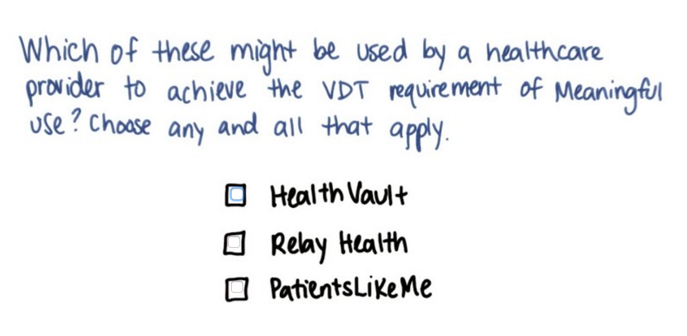 Which of these might be used by a healthcare
provider to achieve the VDT requirement of Meaningful
use? Choose any and all that apply.
HealthVault
Relay Health
PatientsLikeMe